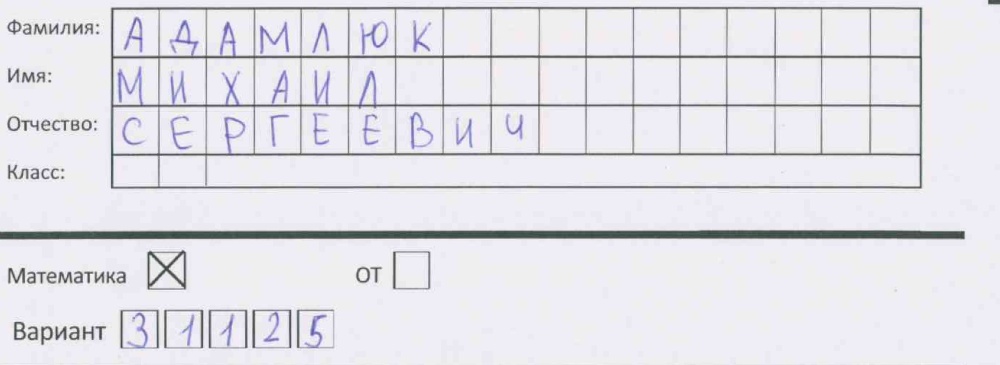 Фамилия: АДАМЛЮК
Имя: МИХАИЛ
Отчество: СЕРГЕЕВИЧ
Класс:
Математика ОТ
Вариант 31125